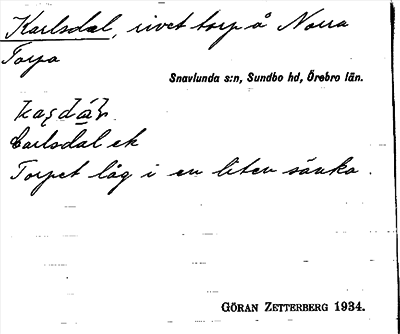 Karlsdal, rivet torp å Norra
Torpa
Snavlunda s:n, Sundbo hd, Örebro län.
Carlsdal ek
Torpet låg i en liten sänka.
GÖRAN ZETTERBERG 1934.